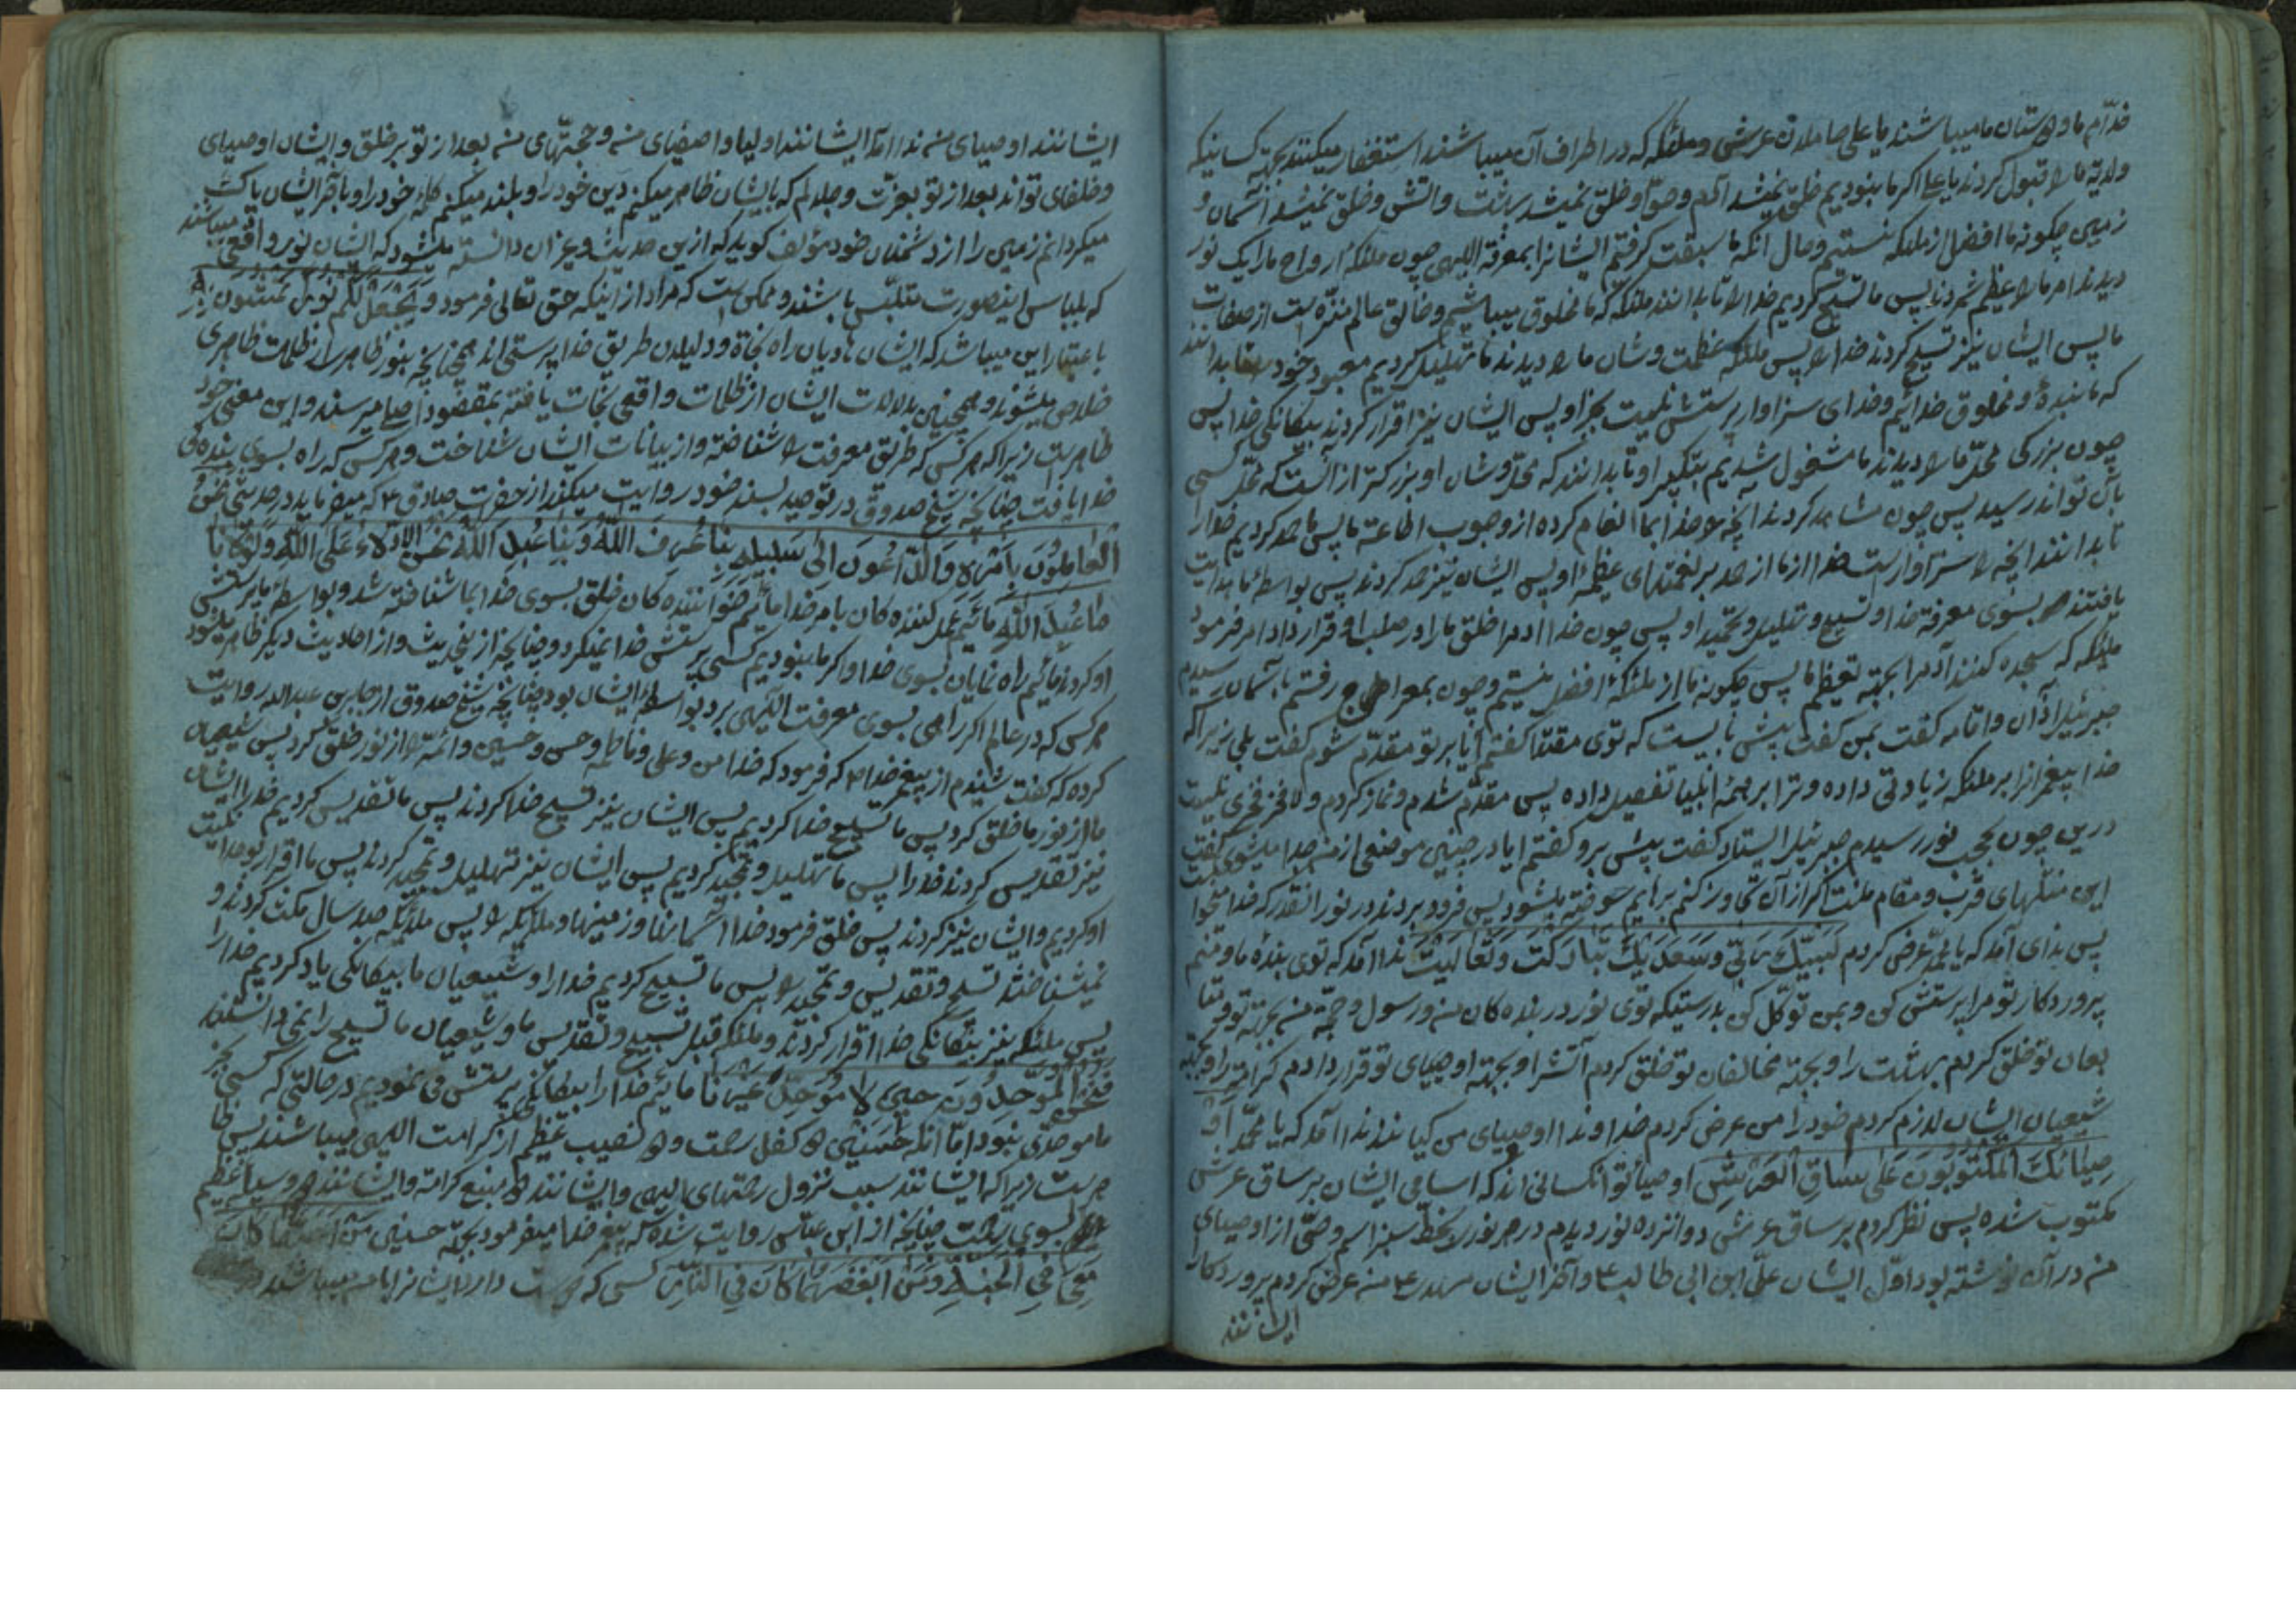 خدّام ما و دوستان ما میباشند یا علی حاملان عرش و ملئکه که در اطراف آن میباشند استغفار میکنند بجهة کسانیکه
ولایة ما را قبول کردند یا علی اگر ما نبودیم خلق نمیشد آدم و حوّا و خلق نمیشد بهشت و اتش و خلق نمیشد آسمان و
زمین چکونه ما افضل از ملئکه نیستیم و حال انکه ما سبقت کرفتیم ایشانرا بمعرفة اللهی چون ملئکه ارواح ما را یک نور
دیدند امر ما را عظیم شمردند پس ما تسبیح کردیم خدا را تا بدانند ملئکه که ما مخلوق میباشیم و خالق عالم منزّه است از صفات
ما پس ایشان نیز تسبیح کردند خدا را پس ملئکه عظمت و شان ما را دیدند ما تهلیل کردیم معبود خود را تا بدانند
که ما بندهٔ و مخلوق خدائیم و خدای سزاوار پرستش نیست بجز او پس ایشان نیز اقرار کردند بیکانکی خدا پس
چون بزرکی محلّ ما را دیدند ما مشغول شدیم بتکبیر او تا بدانند که محلّ و شان او بزرکتر از آنست که محلّ کسی
بآن تواند رسید پس چون مشاهد کردند انچه را خدا بما انعام کرده از وجوب اطاعة ما پس ما حمد کردیم خدا را
تا بدانند انچه را سزاوار است خدا از ما از حمد بر نعمتهای عظیمهٔ او پس ایشان نیز حمد کردند پس بواسطهٔ ما هدایت
یافتند بسوی معرفة خدا و تسبیح و تهلیل و تحمید او پس چون خدا ادم را خلق ما را در صلب او قرار داد امر فرمود
ملئکه که سجده کنند آدم را بجهة تعظیم ما پس چکونه ما از ملئکه افضل نیستیم و چون بمعراج رفتم باسمان رسیدم
جبرئیل اذان و اقامه کفت بمن کفت پیش بایست که توی مقتدا کفتم آیا بر تو مقدّم شوم کفت بلی زیرا که
خدا پیغمبرانرا بر ملئکه زیادتی داده و ترا بر همهٔ انبیا تفصیل داده پس مقدّم شدم و نماز کردم و لا فخر فخری نیست
درین چون بحجب نور رسیدم جبرئیل ایستاد کفت پیش برو کفتم ایا در چنین موضعی از من جدا میشوی کفت
این منتهای قرب و مقام منست اکر از آن تجاوز کنم پرهایم سوخته میشود پس فرود بردند در نور انقدر که خدا میخواست
پس ندای آمد که یا محمّد عرض کردم لَبَّیْکَ رَبّی وَسَعْدَیْکَ تَبارَکْتَ وَتَعالَیْتَ ندا آمد که توی بندهٔ ما و منم
پروردکار تو مرا پرستش کن و بمن توکّل کن بدرستیکه توی نور در بنده کان من و رسول و حجّة من بجهة تو و متا
بعان تو خلق کردم بهشت را و بجهة مخالفان تو خلق کردم آتشرا و بجهة اوصیای تو قرار دادم کرامة را و بجهة
شیعیان ایشان لازم کردم خود را من عرض کردم خداوندا اوصیای من کیانند ندا آمد که یا محمّد اَوْ
صِیٰائُکَ الْمَکْتُوبُونَ عَلی سٰاقِ الْعَرْشِ اوصیأ تو انکسانی اند که اسامی ایشان بر ساق عرش
مکتوب شده پس نظر کردم بر ساق عرش دوانزده نور دیدم در هر نور را بخطّ سبز اسم وصیّ از اوصیای
من در آن نوشته بود اوّل ایشان علّی ابن ابی طالب ع و آخر ایشان مهدی ع من عرض کردم پروردکارا
ایشانند
ایشانند اوصیای من ندا آمد ایشانند اولیا و اصفیای من و حجتّهای من بعد از تو بر خلق و ایشان اوصیای
و خلفای تو اند بعد از تو بعزّت و جلالم که بایشان ظاهر میکنم دین خود را و بلند میکنم کلمهٔ خود را و باقر ایشان پاک
میکردانم زمین را از دشمنان خود مؤلف کوید که ازین حدیث و غیر ان دانسته میشود که ایشان نور واقعی میباشند
که بلباس اینصورت متلبّس باشند و ممکن است که مراد از اینکه حق تعالی فرمود وَیَجْعَلْ لَکُمْ نُوراً تَمْشُونَ بِهِ
باعتبار این میباشد که ایشان هادیان راه نجاة و دلیلان طریق خدا پرستی اند همچنانچه بنور ظاهر از ظلمات ظاهری
خلاص میشوند و همچنین بدلالات ایشان از ظلمات واقعی نجات یافته بمقصود اصلی میرسند و این معنی خود
ظاهر است زیرا که هر کسی که طریق معرفت را شناخته و از بیانات ایشان شناخت و هر کسی که راه بسوی بنده کی
خدا یافت چنانچه شیخ صدوق در توحید بسند خود روایت میکند از حضرت صادق ع که میفرماید در حدیثی نَحْنُ
الْعٰامِلُونَ بِاَمْرِهِ وَالدّٰاعُونَ اِلیٰ سَبیلِهِ بِنٰا عُرِفَ اللّٰهُ وَبِنٰا عُبِدَ اللّٰهُ نَحْنُ الْاَدِلّاءُ عَلَی اللّٰهِ وَلَوْلٰانٰا
مٰا عُبِدَ اللّٰهُ مائیم عمل کننده کان بامر خدا مائیم خواننده کان خلق بسوی خدا بما شناخته شد و بواسطهٔ ما پرستش
او کردند مائیم راه نمایان بسوی خدا و اکر ما نبودیم کسی پرستش خدا نمیکرد و چنانچه ازینحدیث و از احادیث دیکر ظاهر میشود
هر کسی که در عالم اکر راهی بسوی معرفت اللهی برد بواسطهٔ ایشان بود چنانچه شیخ صدوق از جابر بن عبدالله روایت
کرده که کفت شنیدم از پیغمبر خدا ص که فرمود که خدا من و علی و فاطمه و حسن و حسین و ائمّه را از نور خلق کرد پس شیعیان
ما از نور ما خلق کرد پس ما تسبیح خدا کردیم پس ایشان نیز تسبیح خدا کردند پس ما تقدیس کردیم خدا را ایشان
نیز تقدیس کردند خدا را پس ما تهلیل و تمجید کردیم پس ایشان نیز تهلیل و تمجید کردند پس ما اقرار بوحدانیت
او کردیم و ایشان نیز کردند پس خلق فرمود خدا آسمانها و زمینها و ملئکه را پس ملئکه صد سال مکث کردند و
نمیشناختند تسبیح و تقدیس و تمجید را پس ما تسبیح کردیم خدا را و شیعیان ما بیکانکی یاد کردیم خدا را
پس ملئکه نیز بیکانکی خدا اقرار کردند و ملئکه قبل تسبیح و تقدیس ما و شیعیان ما تسبیح را نمی دانستند
فَنَحْنُ الْمُوَحِّدُونَ حینَ لٰا مُوَحِّدَ غَیْرُنٰا مائیم خدا را بیکانکی پرستش می نمودیم در حالتی که کسی بجز
ما موحدّی نبود امّا انکه حسنین دو کفل رحمت و دو نصیب عظیم از کرامت اللهی میباشند پس ظا
هر است زیرا که ایشانند سبب نزول رحمتهای اللهی و ایشانند دو منبع کرامة و ایشانند دو وسیلهٔ عظیم
بسوی رحمت چنانچه از ابن عبّاس روایت شده که پیغمبر خدا میفرمود بجهة حسنین مَنْ اَحَبَّهُمٰا کٰانَ
مَعی فِی الْجَنَّةِ وَمَنْ اَبْغَضَهُمٰا کٰانَ فِی النّٰارِ کسی که دوست دارد ایشانرا با من میباشد